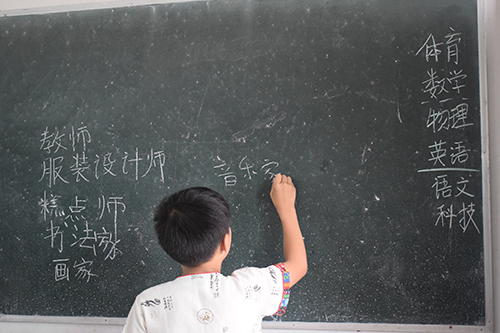 教师
服装设计师
糕点师
书法家
画家
音乐家
体育
数学
物理
英语
语文
科技